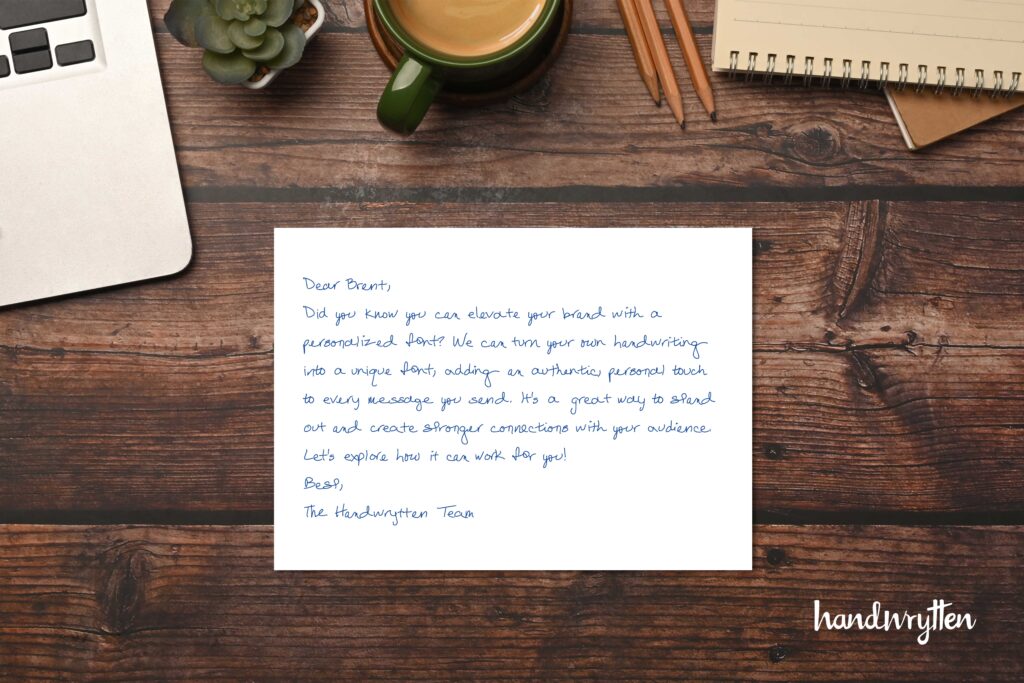 Dear Brent,
Did you know you can elevate your brand with a
personalized font? We can turn your own handwriting
into a unique font, adding an authentic, personal touch
to every message you send. It's a great way to stand
out and create stronger connections with your audience.
Let's explore how it can work for you!
Best,
The Handwrytten Team
handwrytten